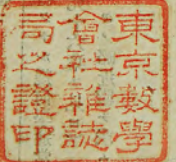 東京數學
會社雜誌
司之證印